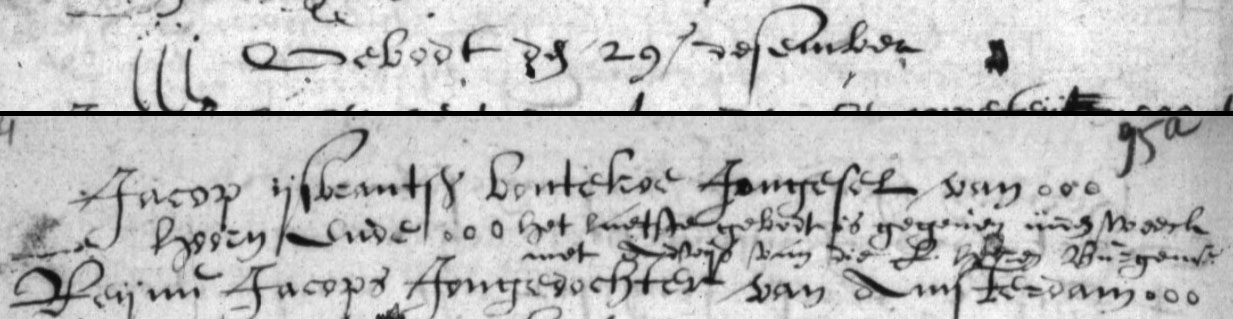 iij Gebodt den 29 desember
95a
Jacop ijsbrantsz bontekoe Jongesel van
hoorn ende het laetste gebodt is gegeven inde weeck
met advijs van die E. heren Burgemrs
Reijnu Jacops Jongedochter van Amsterdam